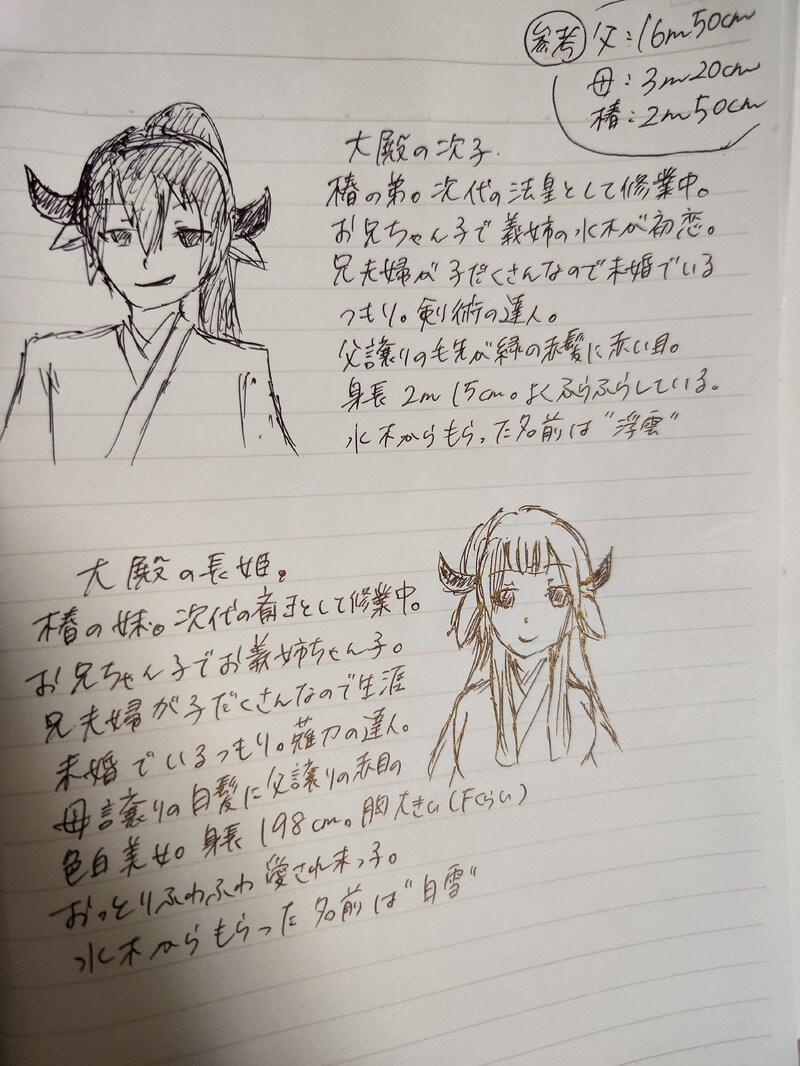 参考 父:16m50cm
母:3m20cm
椿:2m50cm
大殿の次子.
椿の弟。次代の法皇として修業中。
お兄ちゃん子で義姉の水木が初恋。
兄夫婦が子だくさんなので未婚でいる
つもり。剣術の達人。
父譲りの毛先が緑の赤髪に赤い目。
身長 2m 15cm。よくふらふらしている。
水木からもらった名前は"浮雲"
大殿の長姫。
椿の妹。次代の斎王として修業中。
お兄ちゃん子でお義姉ちゃん子。
兄夫婦が子だくさんなので生涯
未婚でいるつもり。薙刀の達人。
母譲りの白髪に父譲りの赤目の
色白美女。身長 198cm。胸大きい(Fくらい)
おっとりふわふわ愛され末っ子。
水木からもらった名前は"白雪"